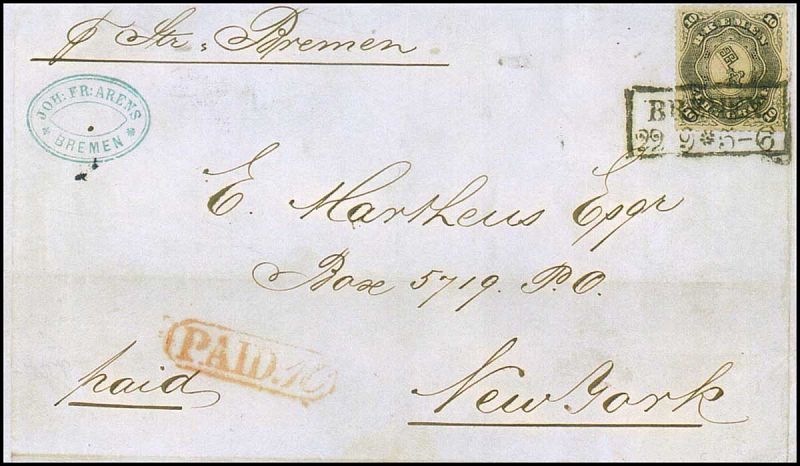 pr Str. Bremen
JOH: FR: ARENS
* BREMEN *
10 10
BREMEN
10 10
22 9 * 5-6
E. Martheus Esqr
Box 5719. P.O.
PAID. 10
paid
New York